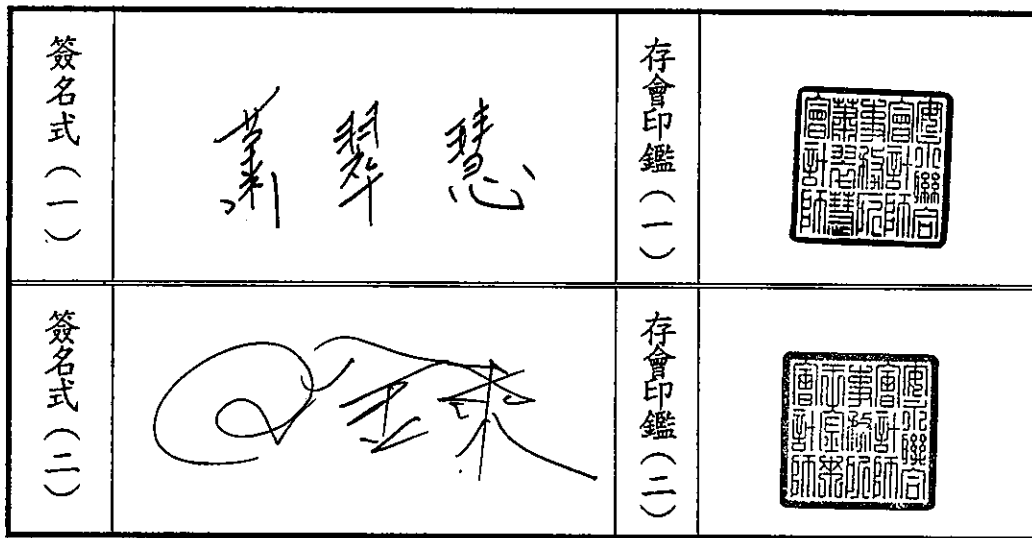 簽名式（一）
蕭翠慧
存會印鑑（一）
安永聯合
會計師
事務所
蕭翠慧
會計師
簽名式（二）
存會印鑑（二）
安永聯合
會計師
事務所
王金來
會計師